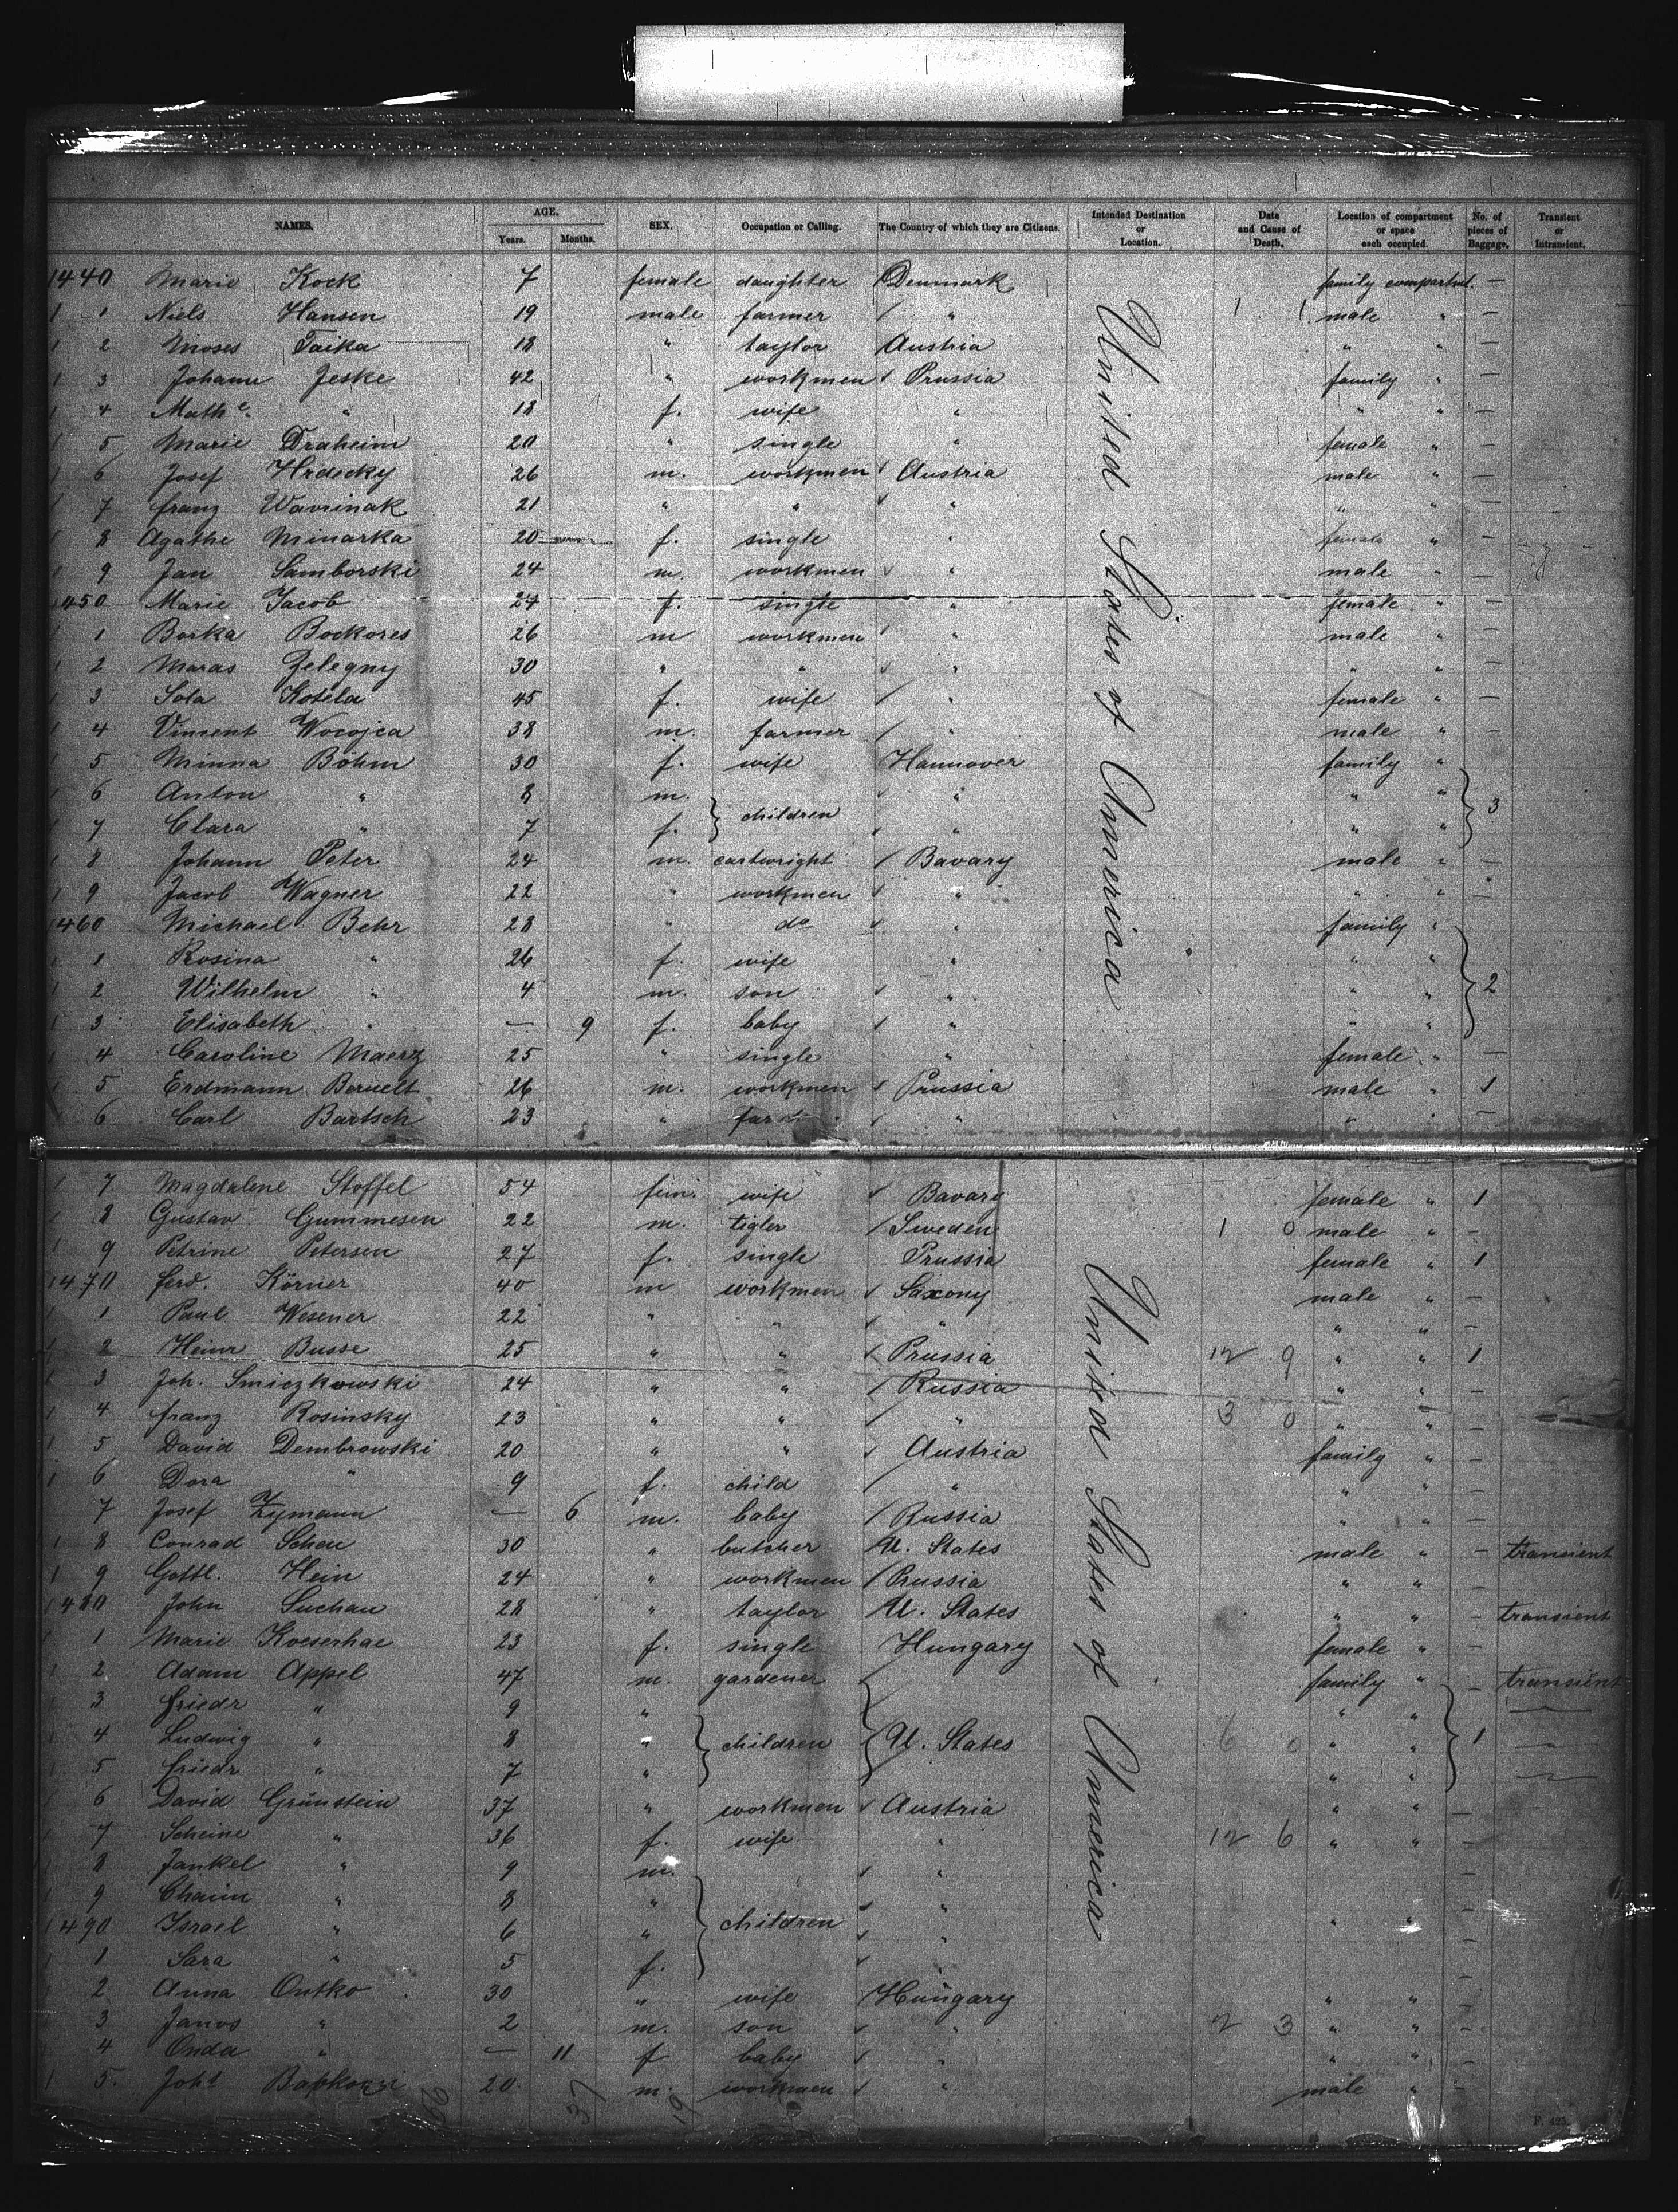 NAMES. AGE. Years. Months. SEX. Occupation or Calling. The Country of which they are Citizens. Intended Destination or Location. Date and Cause of Death. Location of compartment or space each occupied. No. of pieces of Baggage. Transient or Intransient.
United States of America
1440 Marie Kock 7 female daughter Denmark family compartmt. —
1 1 Niels Hansen 19 male farmer " male " —
1 2 Moses Taika 18 " taylor Austria " " —
1 3 Johann Jeske 42 " workmen Prussia family " —
1 4 Mathe. " 18 f. wife " " " —
1 5 Marie Draheim 20 " single " female " —
1 6 Josef Hrdecky 26 m. workmen Austria male " —
1 7 franz Wavrinak 21 " " " " " —
1 8 Agathe Minarka 20 f. single " female " —
1 9 Jan Samborski 24 m. workmen " male " —
1450 Marie Jacob 24 f. single " female " —
1 1 Borka Bockores 26 m workmen " male " —
1 2 Maras Zelegny 30 " " " " " —
1 3 Sola Kotela 45 f. wife " female " —
1 4 Vincent Wocojca 38 m. farmer " male " —
1 5 Minna Böhm 30 f. wife Hannover family "
1 6 Anton " 8 m. children " " " 3
1 7 Clara " 7 f. " " "
1 8 Johann Peter 24 m. cartwright Bavary male " —
1 9 Jacob Wagner 22 " workmen " " " "
1460 Michael Behr 28 " do " family "
1 1 Rosina " 26 f. wife " " "
1 2 Wilhelm " 4 m. son " " " 2
1 3 Elisabeth " — 9 f. baby " " "
1 4 Caroline Maerz 25 " single " female " —
1 5 Erdmann Beruelt 26 m. workmen Prussia male " 1
1 6 Carl Bartsch 23 " " " " —
United States of America
1 7 Magdalene Stoffel 54 fem. wife Bavary female " 1
1 8 Gustav Gummesen 22 m. tigler Sweden 1 0 male " —
1 9 Petrine Petersen 27 f. single Prussia female " 1
1470 ferd. Körner 40 m workmen Saxony male " —
1 1 Paul Wesener 22 " " " " " —
1 2 Heinr Busse 25 " " Prussia 12 9 " " 1
1 3 Joh. Smiczkowski 24 " " Russia " " —
1 4 franz Rosinsky 23 " " " 3 0 " " —
1 5 David Dembrowski 20 " " Austria family " —
1 6 Dora " 9 f. child " " " —
7 Josef Zymann — 6 m. baby Russia " " —
1 8 Conrad Scheu 30 " butcher U. States male " — transient
1 9 Gottl. Hein 24 " workmen Prussia " " —
1480 John Suchau 28 " taylor U. States " " — transient
1 1 Marie Koeserhae 23 f. single Hungary female " —
1 2 Adam Appel 47 m. gardener family " transient
1 3 friedr " 9 " " "
1 4 Ludwig " 8 " children U. States 6 0 " " 1
1 5 friedr " 7 " " "
1 6 David Grünstein 37 " workmen Austria " " —
1 7 Scheine " 36 f. wife " 12 6 " " —
1 8 Jankel " 9 m. " —
1 9 Chaim " 8 " " —
1490 Israel " 6 " children " " " —
1 1 Sara " 5 f. " —
1 2 Anna Ontko 30 " wife Hungary " " —
1 3 Janos " 2 m. son " 2 3 " " —
1 4 Onda " — 11 f baby " " " —
1 5. Joht 20 m. workmen " male " —
37 19
F. 425.